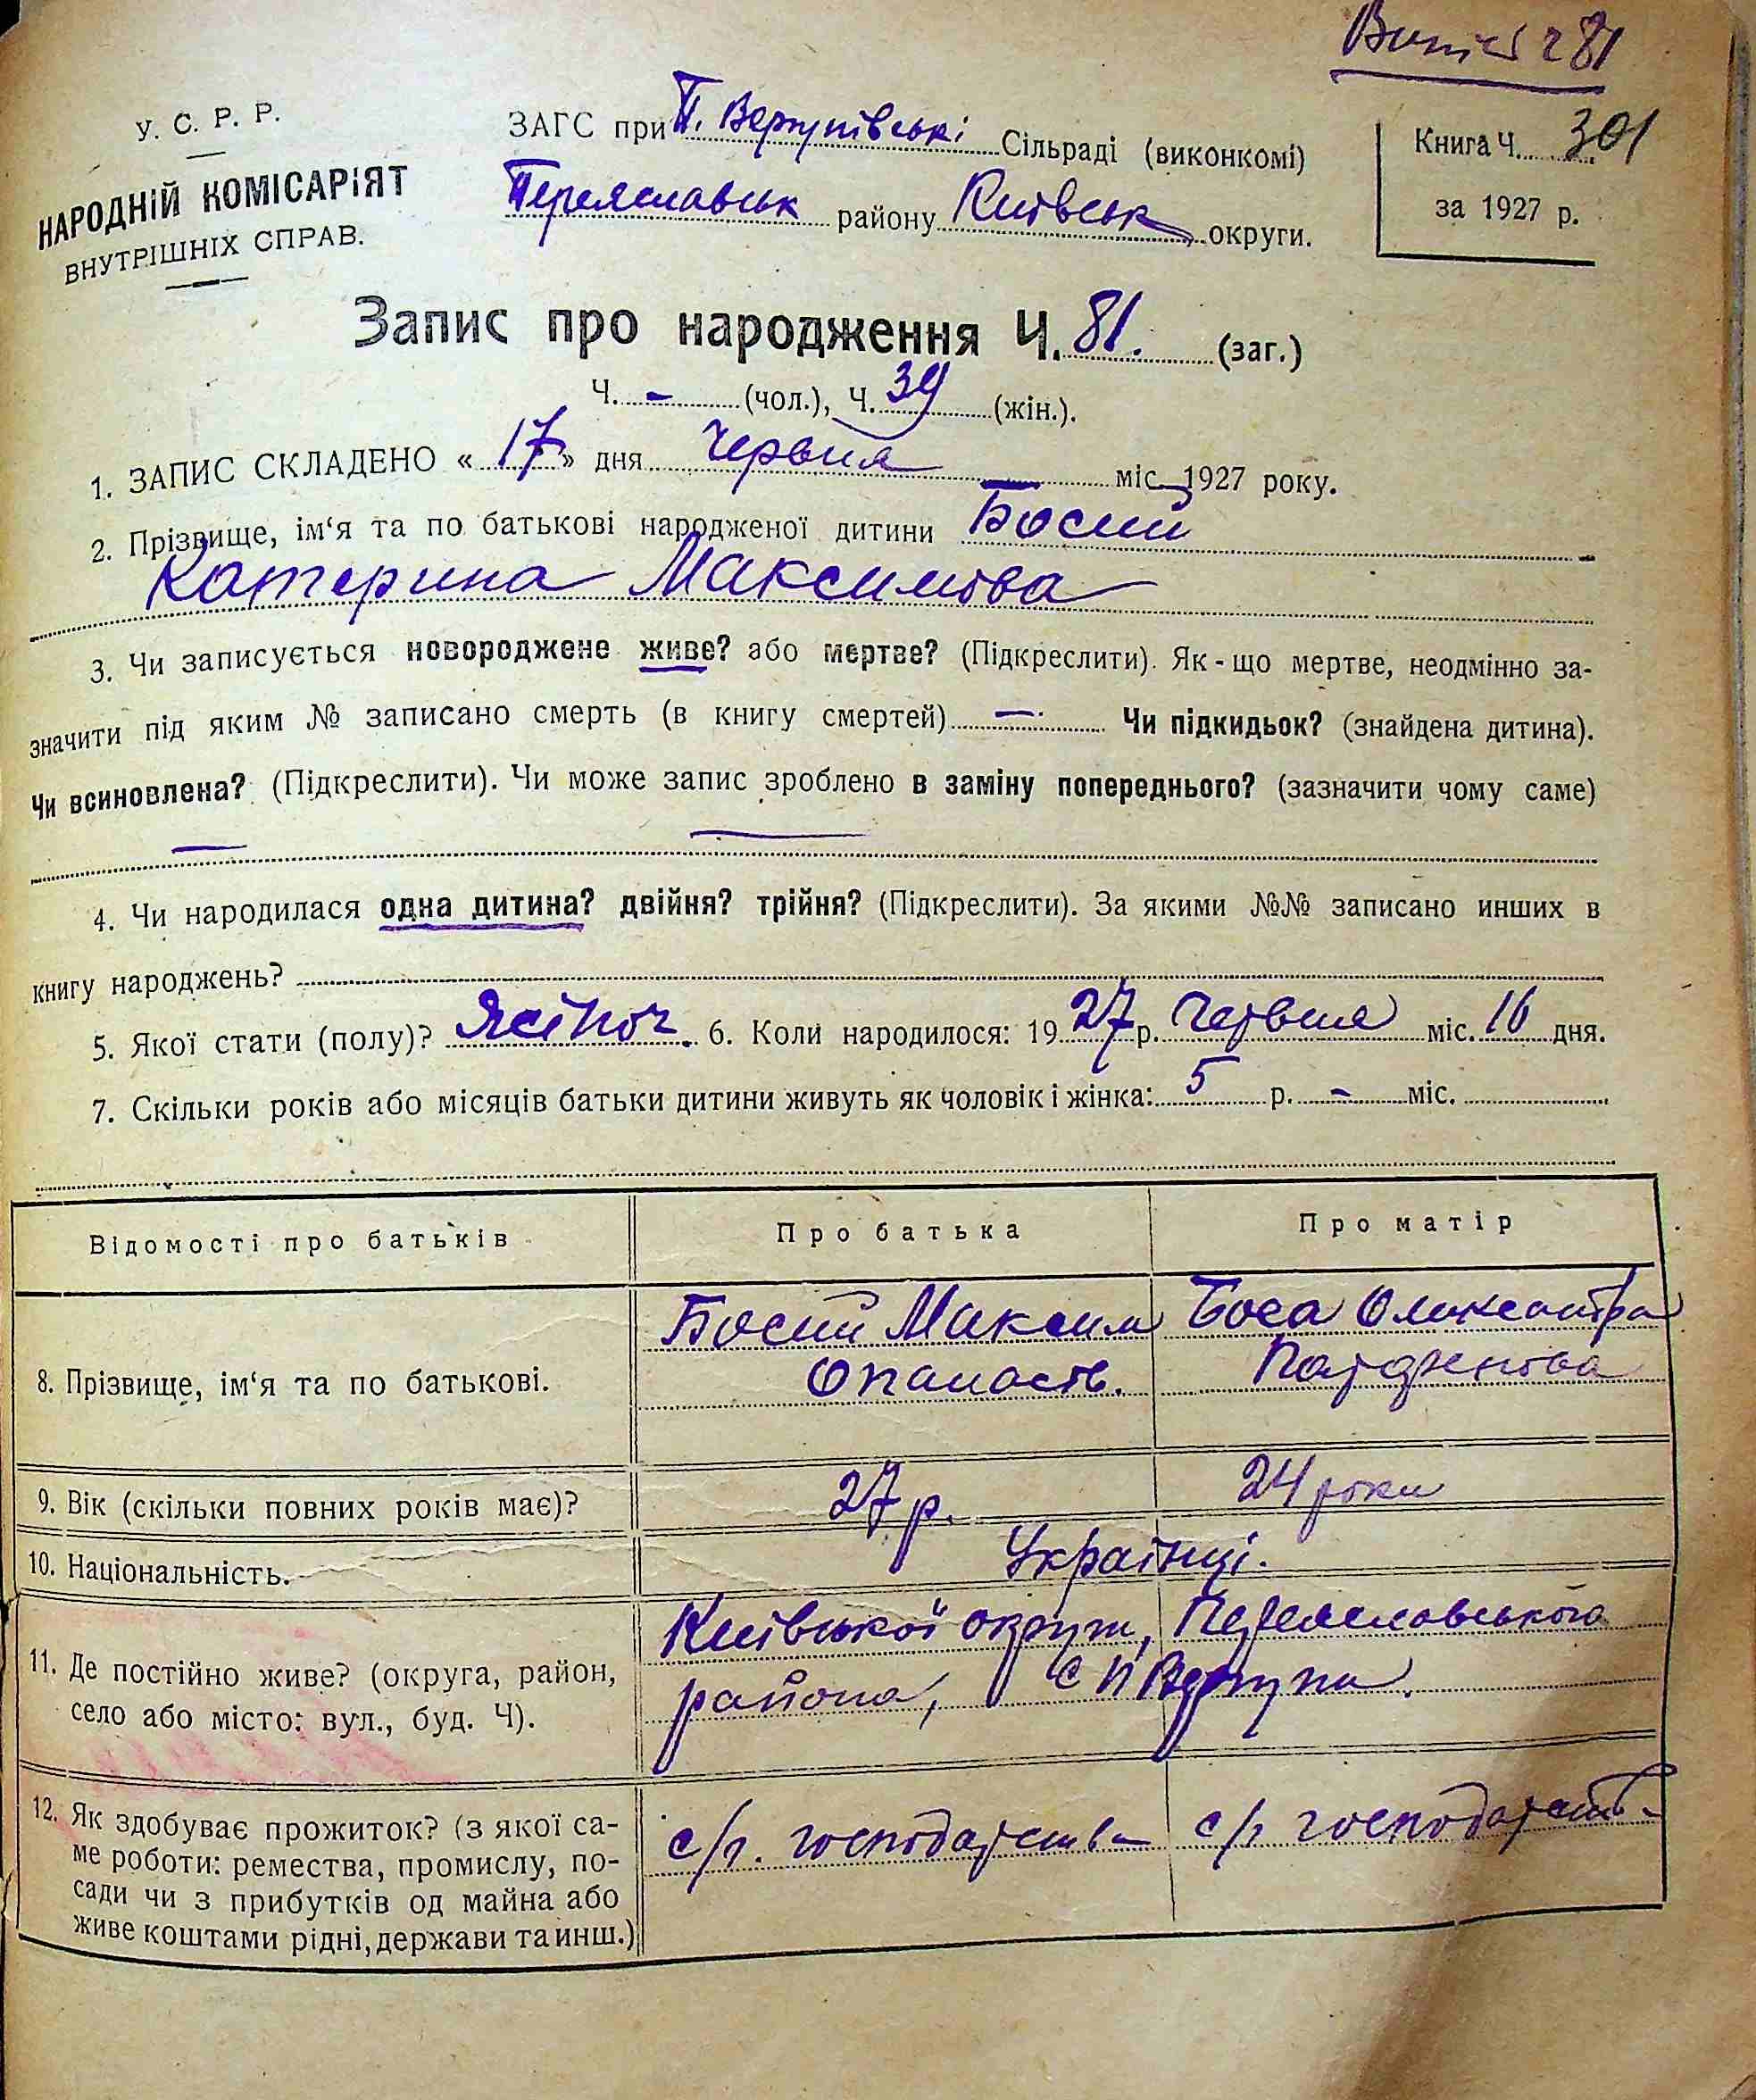 Випис ч 81
У. С. Р. Р.
НАРОДНІЙ КОМІСАРІЯТ
ВНУТРІШНІХ СПРАВ.
ЗАГС при П. Вергунівські Сільраді (виконкомі)
Переяславськ району Київськ округи.
Книга Ч. 301
за 1927 р.
Запис про народження Ч. 81. (заг.)
Ч. - (чол.), Ч. 39 (жін.).
1. ЗАПИС СКЛАДЕНО « 17 » дня Червня міс. 1927 року.
2. Прізвище, ім‘я та по батькові народженої дитини Босий
Катерина Максимова
3. Чи записується новороджене живе? або мертве? (Підкреслити). Як-що мертве, неодмінно за-
значити під яким № записано смерть (в книгу смертей) — Чи підкидьок? (знайдена дитина).
Чи всиновлена? (Підкреслити). Чи може запис зроблено в заміну попереднього? (зазначити чому саме)
— —
4. Чи народилася одна дитина? двійня? трійня? (Підкреслити). За якими №№ записано инших в
книгу народжень?
5. Якої стати (полу)? Жіноч. 6. Коли народилося: 1927 р. Червня міс. 16 дня.
7. Скільки років або місяців батьки дитини живуть як чоловік і жінка: 5 р. - міс.
Відомості про батьків
Про батька
Про матір
8. Прізвище, ім‘я та по батькові.
Босий Максим
Опанасів.
Боса Олександра
9. Вік (скільки повних років має)?
27 р.
24 роки
10. Національність.
Українці.
11. Де постійно живе? (округа, район,
село або місто: вул., буд. Ч).
Київської округи, Переяславського
района, с П Вергуни.
12. Як здобуває прожиток? (з якої са-
ме роботи: ремества, промислу, по-
сади чи з прибутків од майна або
живе коштами рідні, держави та инш.)
с/г. господарства
с/г господарств